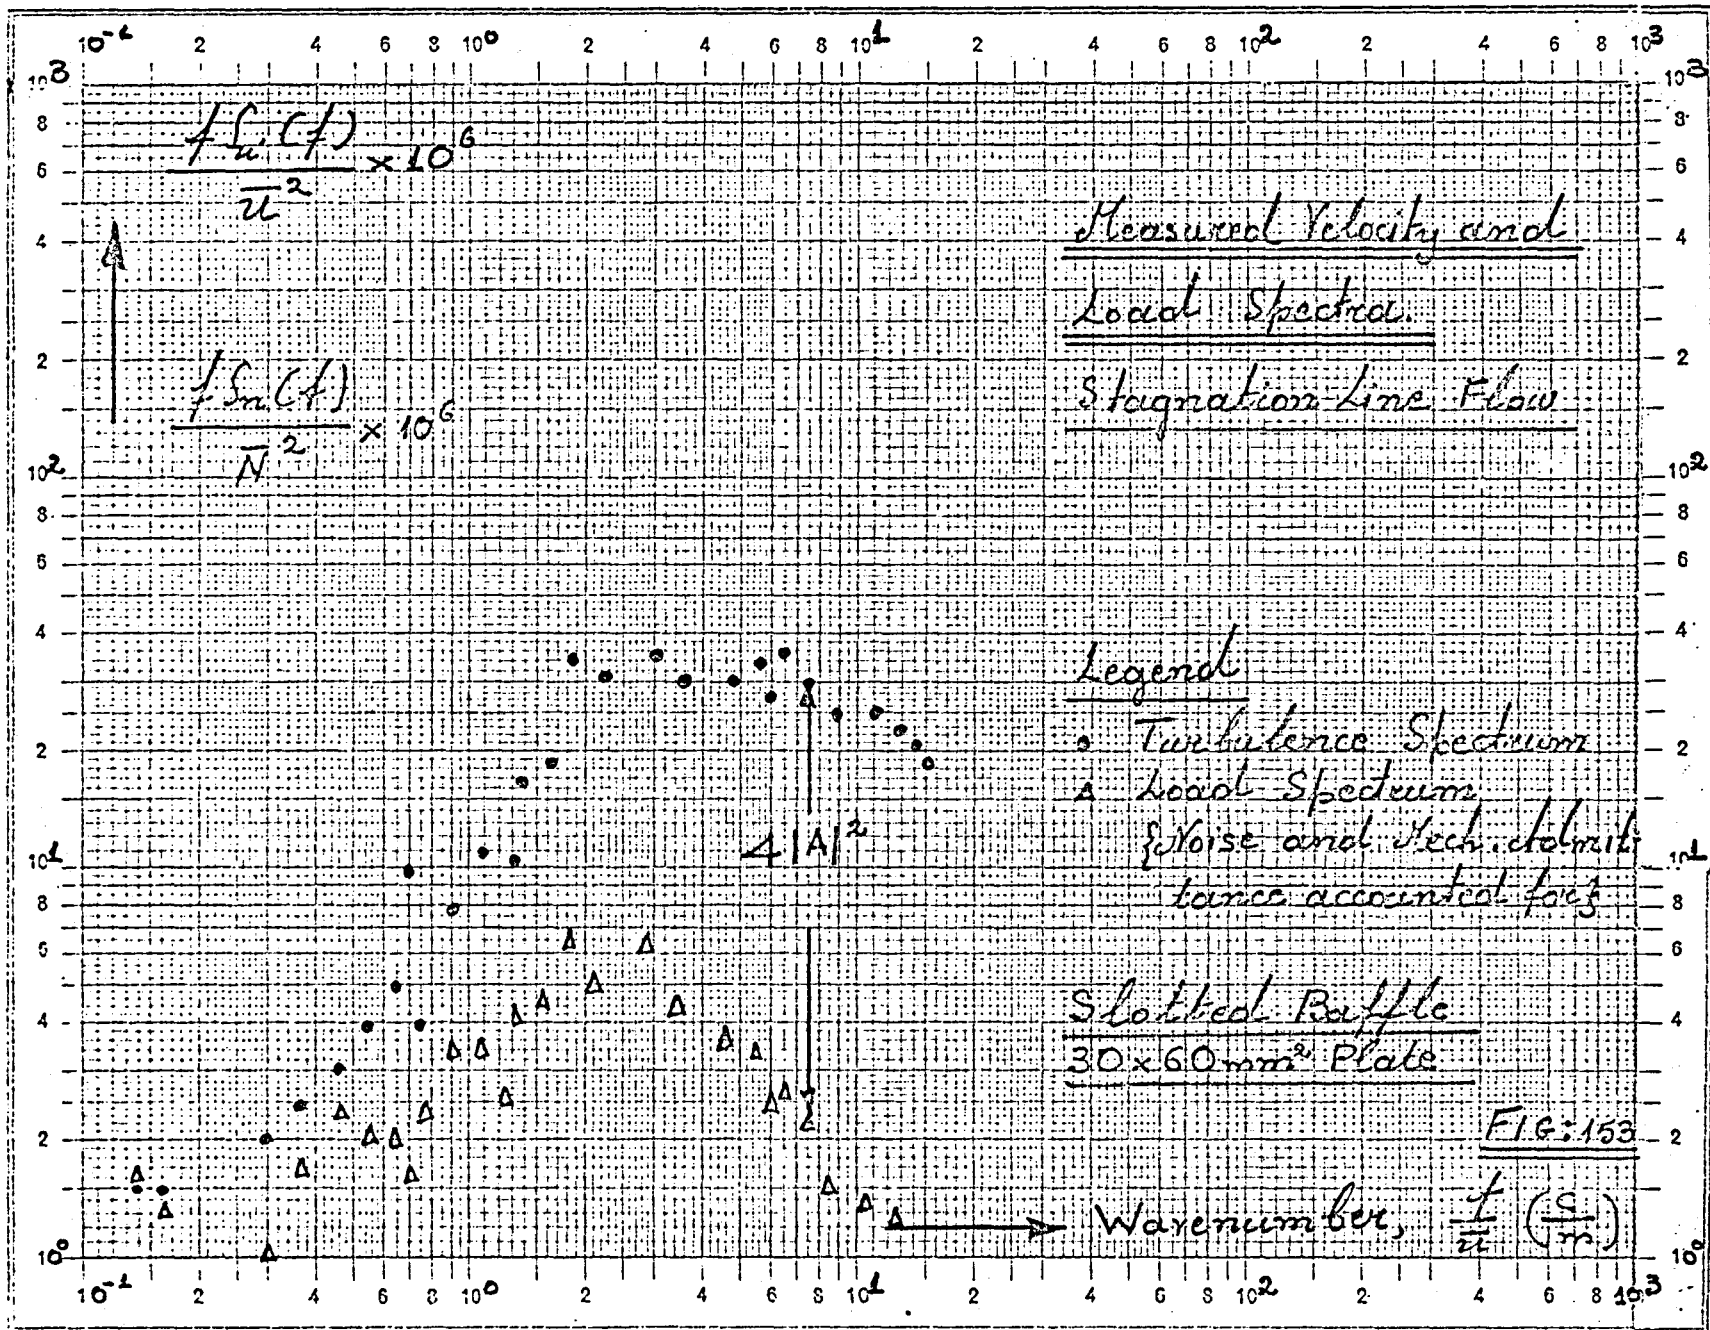 10⁻¹ 2 4 6 8 10⁰ 2 4 6 8 10¹ 2 4 6 8 10² 2 4 6 8 10³
10³
8
6
4
2
10²
8
6
4
2
10¹
8
6
4
2
10⁰
f Su(f) / ū² × 10⁶
f Sn(f) / N̄² × 10⁶
Measured Velocity and
Load Spectra.
Stagnation-Line Flow
Legend
• Turbulence Spectrum
Δ Load Spectrum
{Noise and Mech. Admit-
tance accounted for}
|A|²
Slotted Baffle
30×60mm² Plate
FIG:153
Wavenumber, f/ū (c/m)
10³
8
6
4
2
10²
8
6
4
2
10¹
8
6
4
2
10⁰
10⁻¹ 2 4 6 8 10⁰ 2 4 6 8 10¹ 2 4 6 8 10² 2 4 6 8 10³